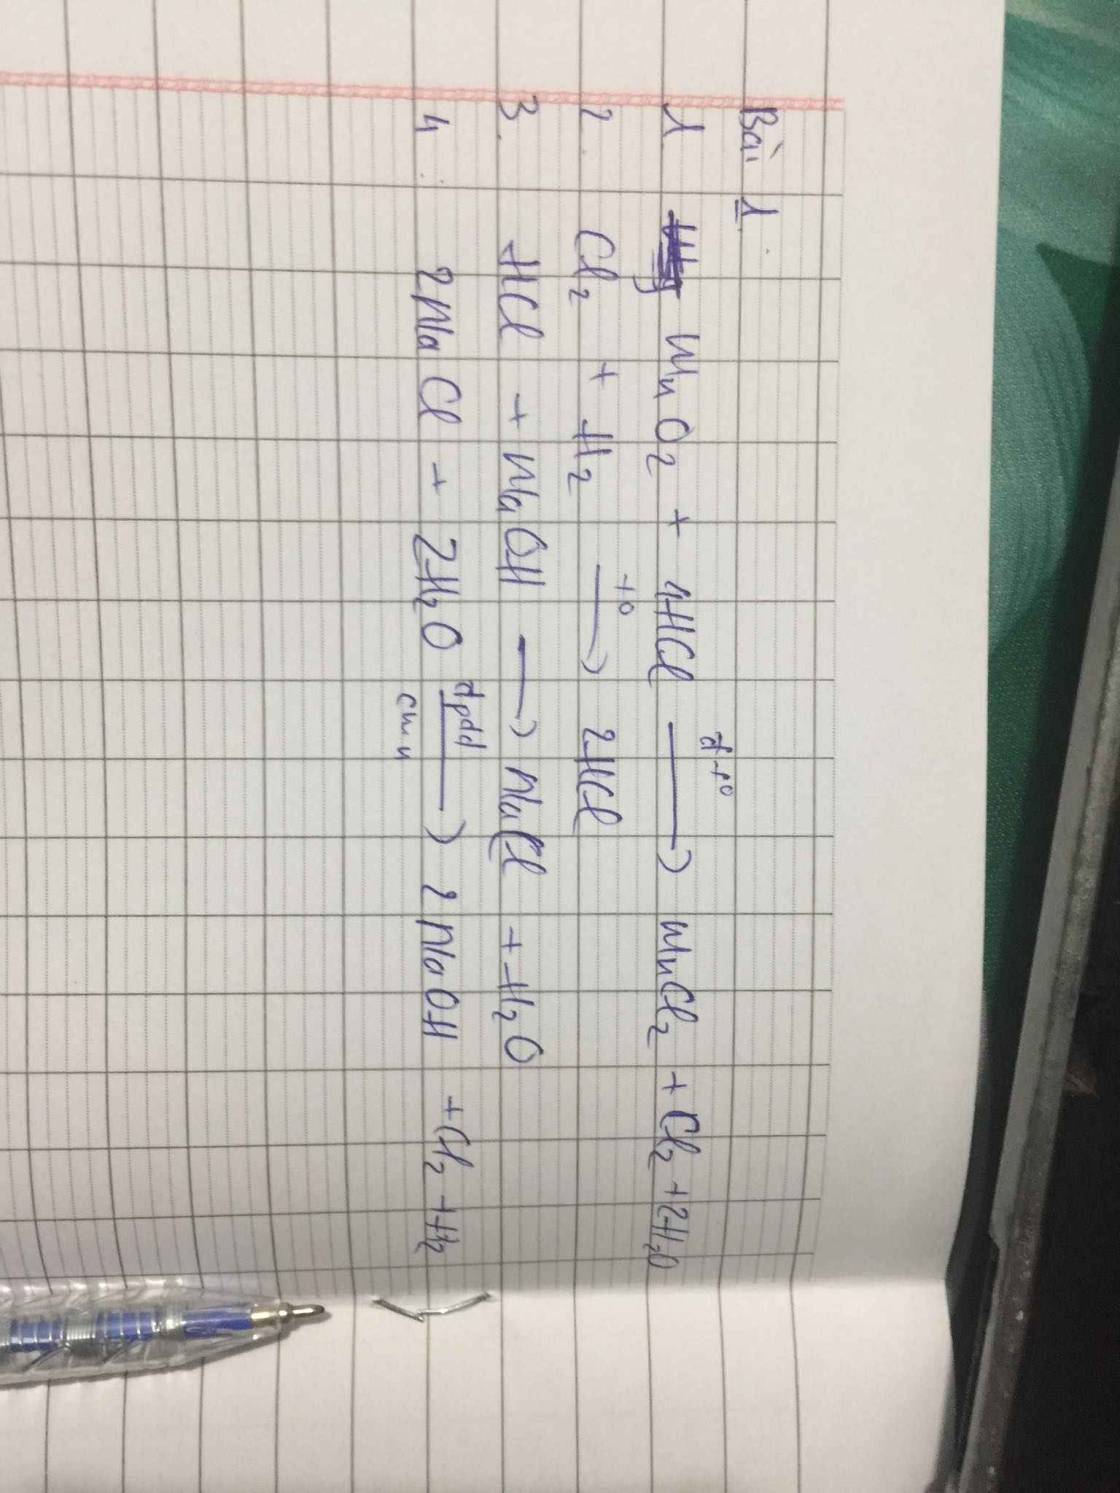 Bài 1.
1. MnO2 + 4HCl —đ,t°—> MnCl2 + Cl2 + 2H2O
2. Cl2 + H2 —t°—> 2HCl
3. HCl + NaOH —> NaCl + H2O
4. 2NaCl + 2H2O —đpdd cmn—> 2NaOH + Cl2 + H2